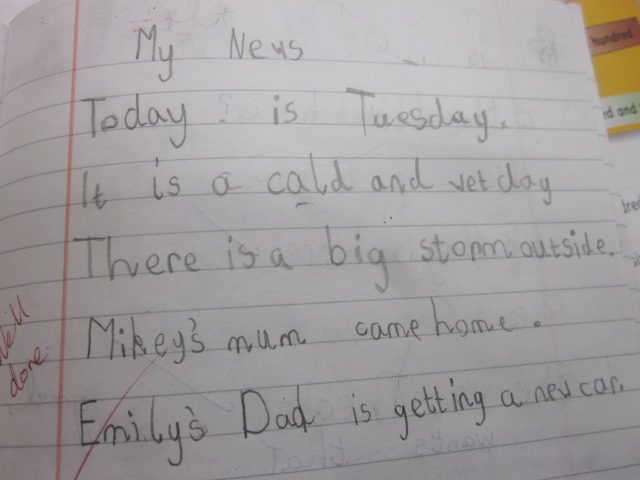 My News
Today is Tuesday.
It is a cald and wet day
There is a big storm outside.
Mikey's mum came home.
Emily's Dad is getting a new car.
Well
done
hundred
ed and